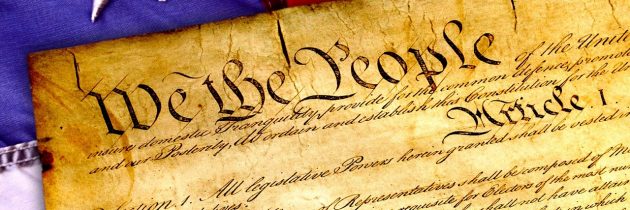 We the People of the United
insure domestic Tranquility, provide for the common defence, promote
and our Posterity, do ordain and establish this Constitution for the Un
Article 1.
ection 1. All legislative Powers herein granted shall be vested in
Representatives shall be composed of M
requisite for Electors of the most nu
shall not have attain
in which